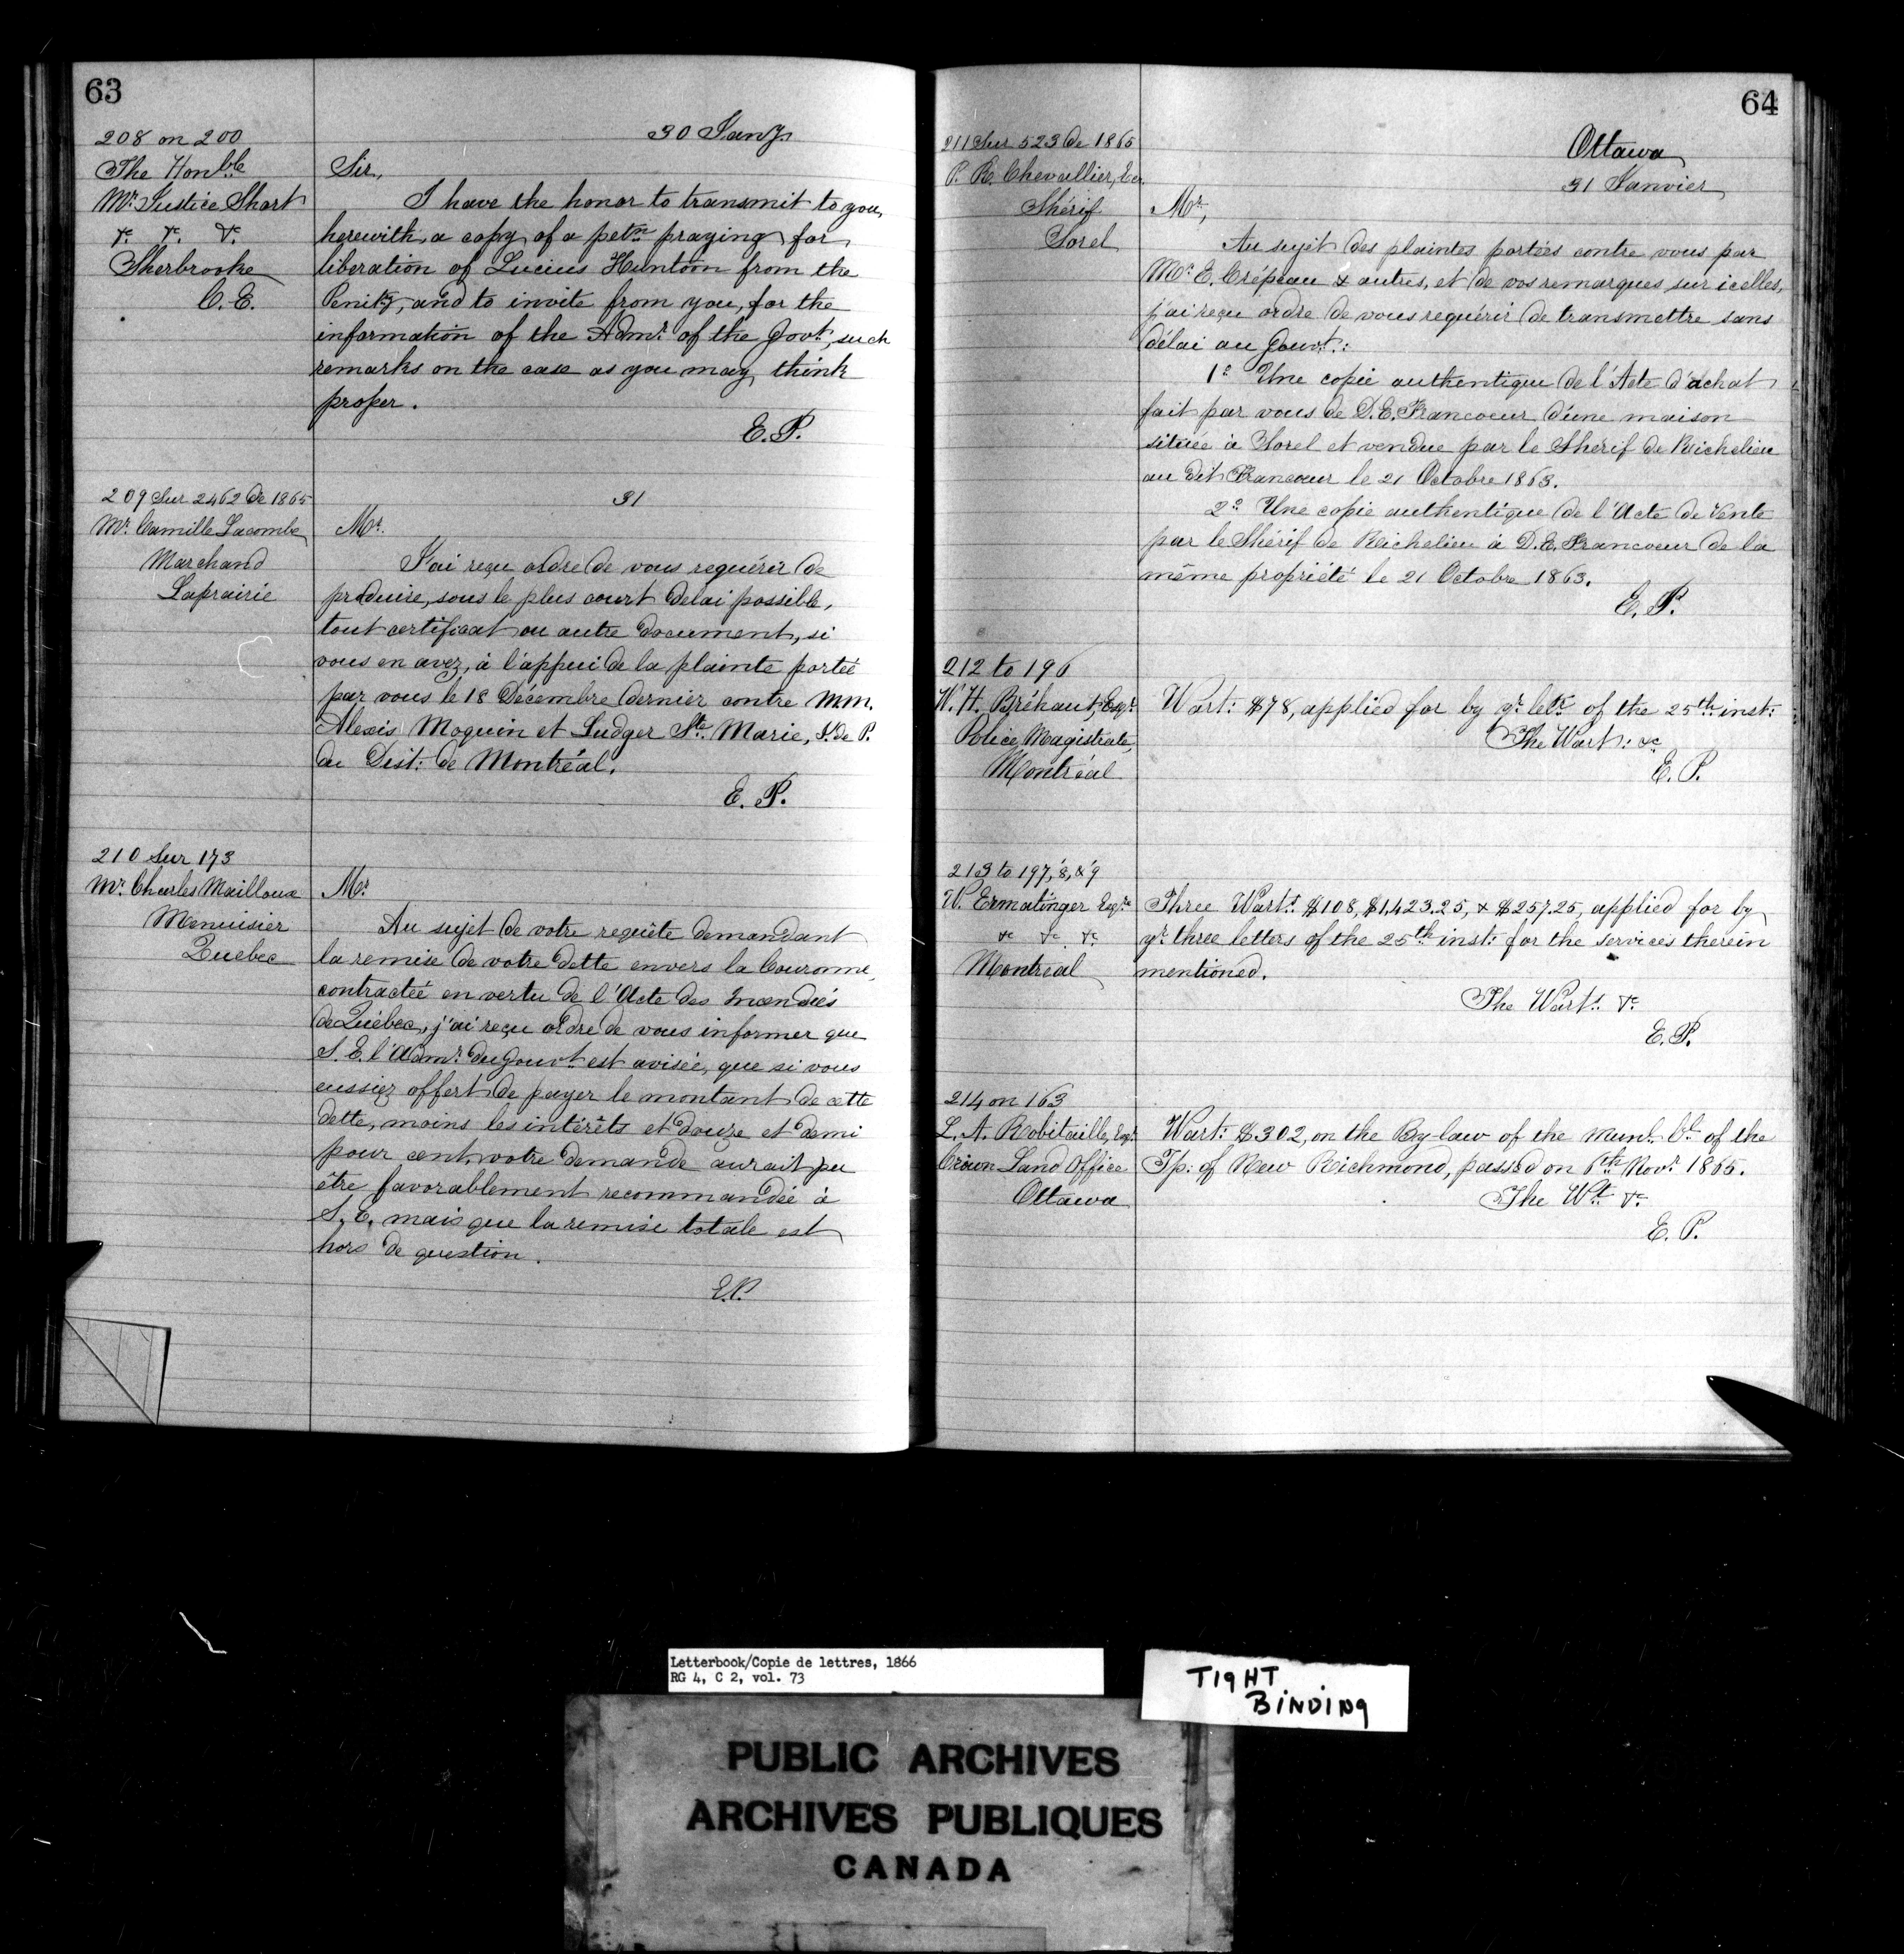 63
208 on 200
The Honble
Mr. Justice Short
&c &c &c
Sherbrooke
C. E.
30 Jany.
Sir,
I have the honor to transmit to you,
herewith, a copy of a petn. praying for
liberation of Lucius Huntoon from the
Penity, and to invite from you, for the
information of the Admr. of the Govt., such
remarks on the case as you may think
proper.
E. P.
209 Sur 2462 de 1865
Mr. Camille Lacombe
Marchand
Laprairie
31
Mr.
J'ai reçu ordre de vous requérir de
produire, sous le plus court delai possible,
tout certificat ou autre document, si
vous en avez, à l'appui de la plainte portée
par vous le 18 Décembre dernier contre M.M.
Alexis Moquin et Ludger Ste. Marie, J. de P.
du Dist: de Montréal.
E. P.
210 Sur 173
Mr. Charles Mailloux
Menuisier
Quebec
Mr.
Au sujet de votre requête demandant
la remise de votre dette envers la Couronne,
contractée en vertu de l'Acte des Incendiés
de Québec, j'ai reçu ordre de vous informer que
S. E. l'Admr. du Gouvt. est avisée, que si vous
eussiez offert de payer le montant de cette
dette, moins les intérêts et douze et demi
pour cent, votre demande aurait pu
être favorablement recommandée à
S. E. mais que la remise totale est
hors de question.
E.P.
64
211 Sur 523 de 1865
P. R. Chevallier, Ecr.
Shérif
Sorel
Ottawa
31 Janvier
Mr.,
Au sujet des plaintes portées contre vous par
Mr. E. Crépeau & autres, et de vos remarques sur icelles,
j'ai reçu ordre de vous requérir de transmettre sans
délai au Gouvt.:
1o. Une copie authentique de l'Acte d'achat
fait par vous de D. E. Francoeur d'une maison
située à Sorel et vendue par le Sherif de Richelieu
au dit Francoeur le 21 Octobre 1863.
2o. Une copie authentique de l'Acte de Vente
par le Shérif de Richelieu à D. E. Francoeur de la
même propriété le 21 Octobre 1863.
E. P.
212 to 196
W. H. Bréhaut, Esqr.
Police Magistrate,
Montréal
Wart: $78, applied for by yr. letr. of the 25th inst:
The Wart: &c
E. P.
213 to 197, 8, & 9
W. Ermatinger Esqre
&c &c &c
Montreal
Three Warts. $108, $1,423.25, & $257.25, applied for by
yr. three letters of the 25th inst: for the services therein
mentioned.
The Warts. &c
E. P.
214 on 163
L. A. Robitaille, Esqr.
Crown Land Office
Ottawa
Wart: $302, on the By-law of the Munl. Cl. of the
Tp: of New Richmond, passed on 6th Novr. 1865.
The Wt. &c
E. P.
Letterbook/Copie de lettres, 1866
RG 4, C 2, vol. 73
TIGHT
BINDING
PUBLIC ARCHIVES
ARCHIVES PUBLIQUES
CANADA